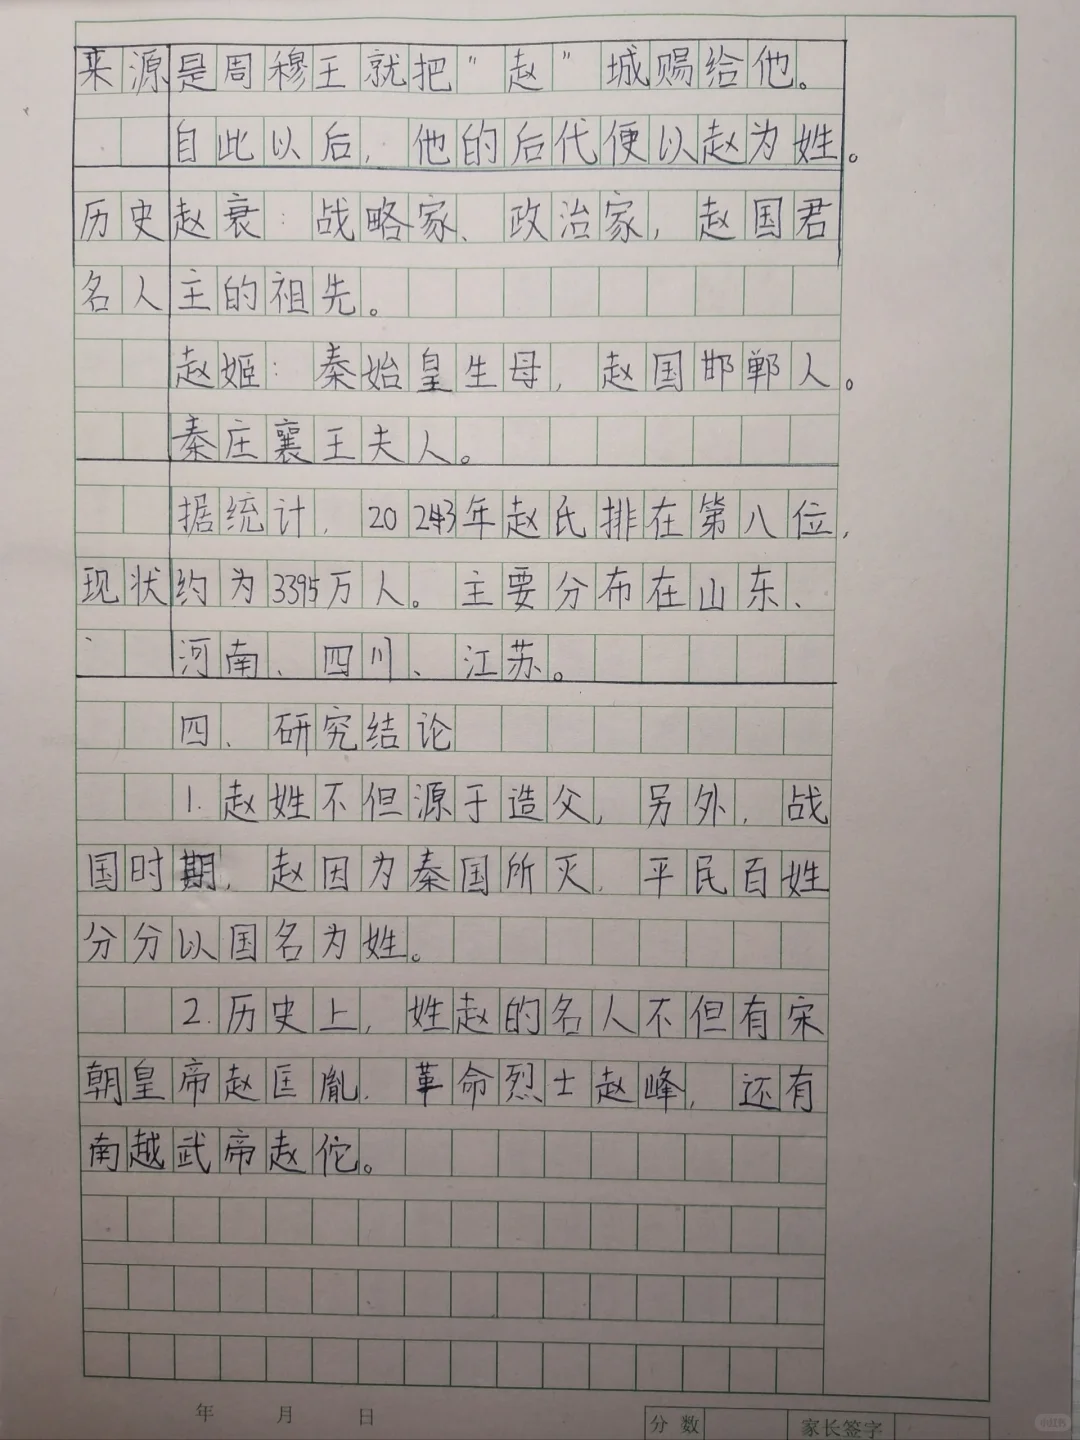 来源是周穆王就把“赵”城赐给他。
自此以后，他的后代便以赵为姓。
历史赵衰：战略家、政治家，赵国君
名人主的祖先。
赵姬：秦始皇生母，赵国邯郸人。
秦庄襄王夫人。
据统计，2023年赵氏排在第八位，
现状约为3395万人。主要分布在山东、
河南、四川、江苏。
四、研究结论
1.赵姓不但源于造父，另外，战
国时期，赵因为秦国所灭，平民百姓
分分以国名为姓。
2.历史上，姓赵的名人不但有宋
朝皇帝赵匡胤，革命烈士赵峰，还有
南越武帝赵佗。
年 月 日
分数 家长签字